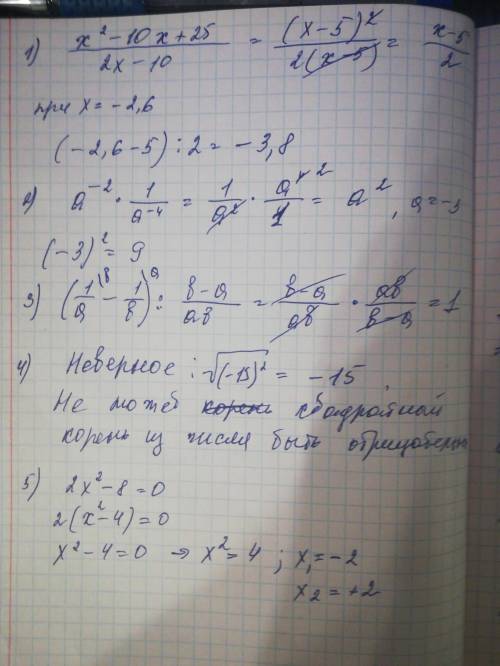 1) (x²-10x+25)/(2x-10) = (x-5)²/(2(x-5)) = (x-5)/2
при x = -2,6
(-2,6-5) : 2 = -3,8
2) a⁻² · 1/a⁻⁴ = 1/a² · a⁴/1 = a², a = -3
(-3)² = 9
3) (1/a - 1/в) : (в-а)/ав = (в-а)/ав · ав/(в-а) = 1
4) Неверное : √(-15)² = -15
Не может корень квадратный
корень из числа быть отрицательн
5)
2x²-8=0
2(x²-4)=0
x²-4=0 → x²=4 ; x₁=-2
x₂=+2